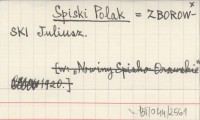 Spiski Polak = ZBOROW-
SKI Juliusz.
[w: „Nowiny Spisko-Orawskie"
1920.]
BJ/044/2561